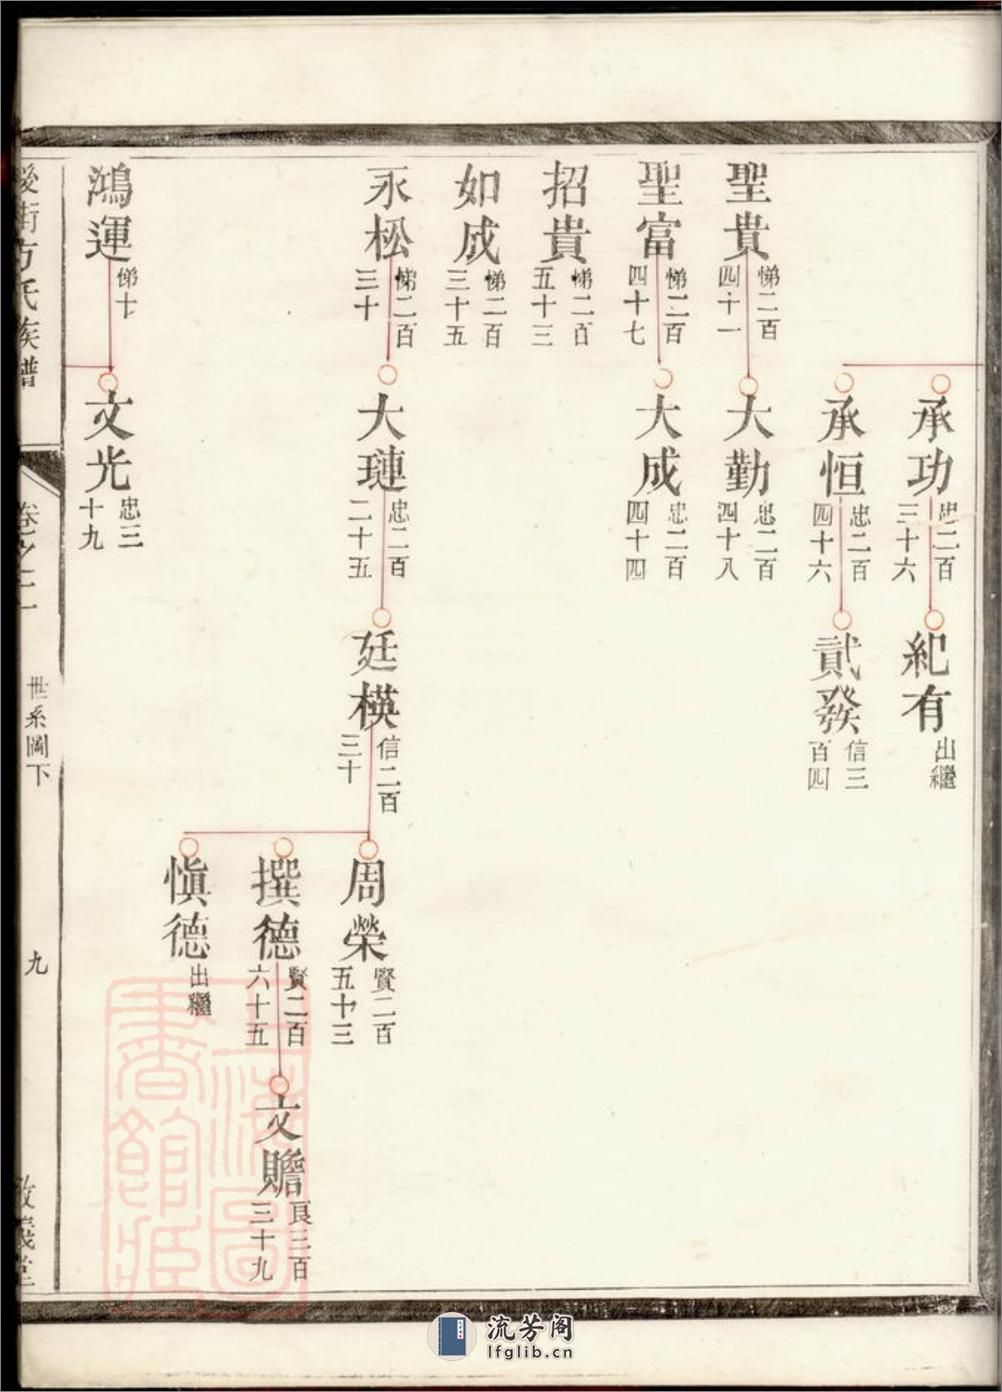 承功
忠二百
三十六
紀有
出繼
承恒
忠二百
四十六
貳發
信三
百四
聖貴
悌二百
四十一
大勤
忠二百
四十八
聖富
悌二百
四十七
大成
忠二百
四十四
招貴
悌二百
五十三
如成
悌二百
三十五
永松
悌二百
三十
大璉
忠二百
二十五
廷模
信二百
三十
周榮
賢二百
五十三
撰德
賢二百
六十五
文贍
良三百
三十九
愼德
出繼
鴻運
悌十
文光
忠三
十九
方氏族譜
卷之二
世系圖下
九
上海圖書館藏
流芳阁
lfglib.cn